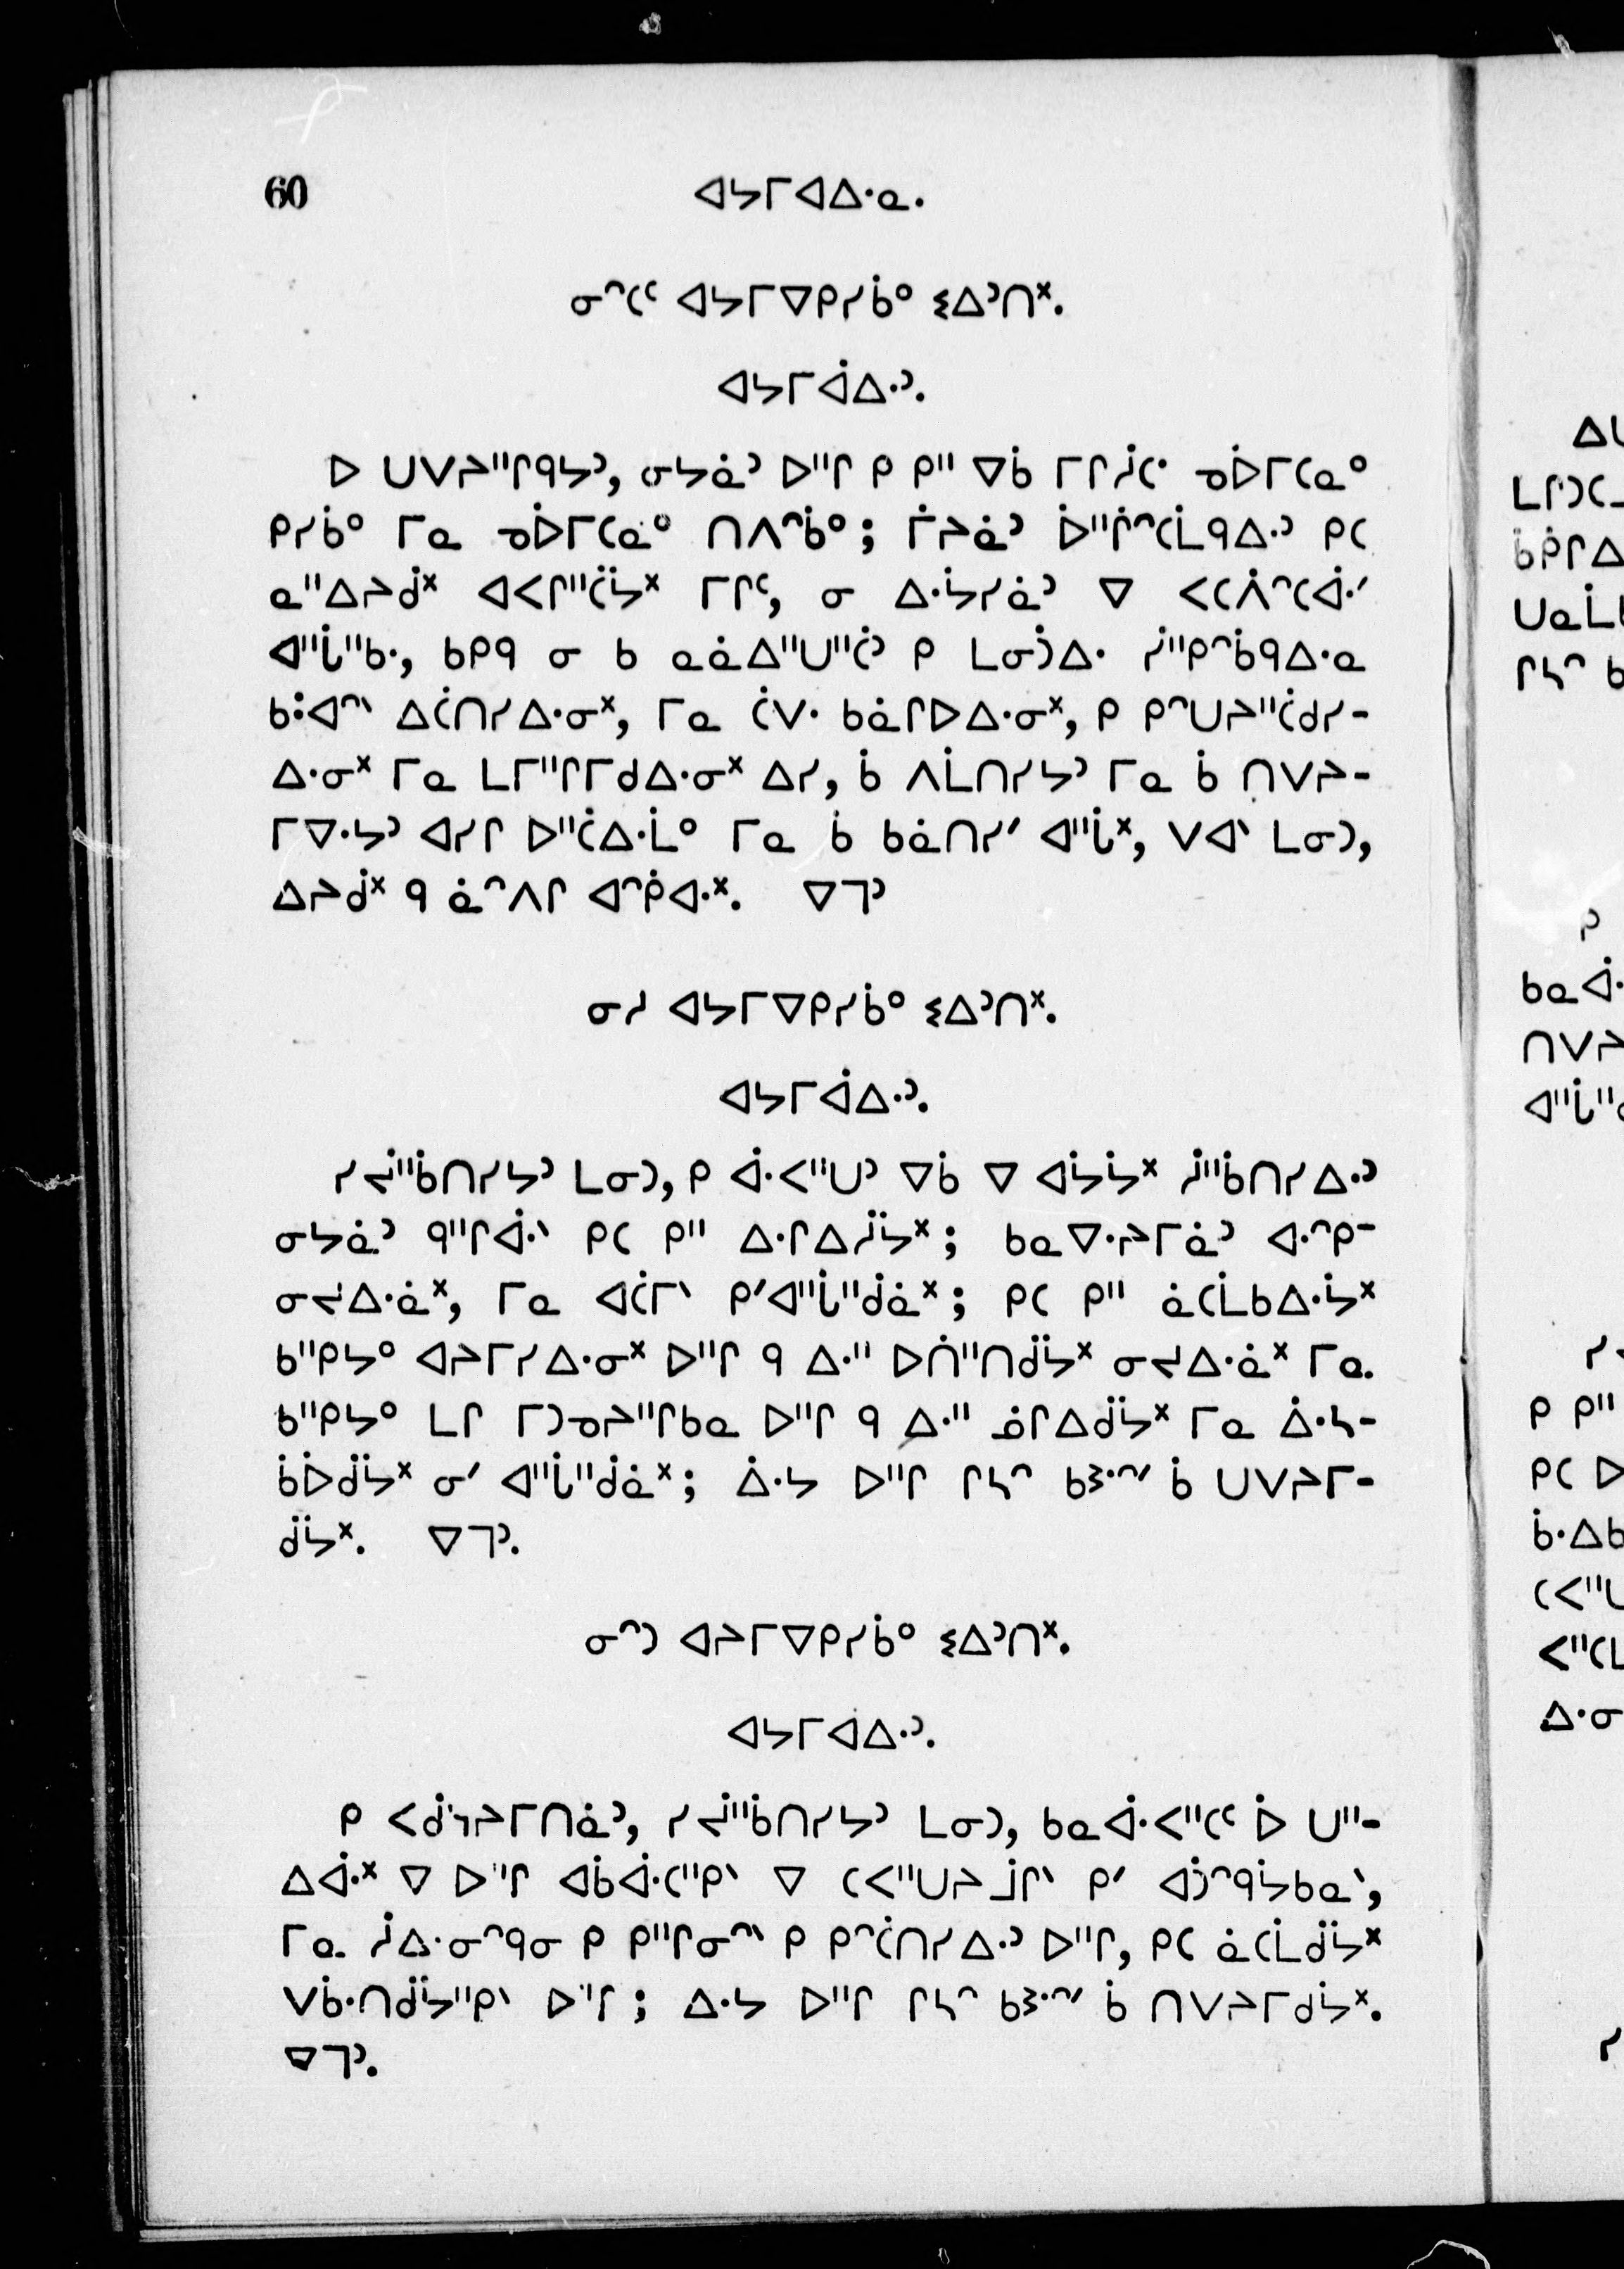 60 ᐊᔭᒥᐊᐃᐧᓇ.
ᓂᐢᑕᑦ ᐊᔭᒥᐁᑭᓯᑳᐤ ᕒᐃᐣᑎᕽ.
ᐊᔭᒥᐋᐃᐧᐣ.
ᐅ ᑌᐯᔨᐦᒋᑫᔭᐣ, ᓂᔭᓈᐣ ᐅᐦᒋ ᑭ ᑭᐦ ᐁᑳ ᒥᒋᓰᑕᐧ ᓅᐆᒥᑕᓇᐤ
ᑭᓯᑳᐤ ᒥᓇ ᓅᐆᒥᑕᓇᐤ ᑎᐱᐢᑳᐤ; ᒦᔨᓈᐣ ᐆᐦᒌᐢᑖᒫᑫᐃᐧᐣ ᑭᑕ
ᓇᐦᐃᔨᑰᕽ ᐊᐸᒋᐦᑖᔮᕽ ᒥᒋᑦ, ᓂ ᐃᐧᔮᓯᓈᐣ ᐁ ᐸᑕᐲᐢᑕᐚᐟ
ᐊᐦᒑᐦᑲᐧ, ᑲᑭᑫ ᓂ ᑲ ᓇᓈᐃᐦᑌᐦᑖᐣ ᑭ ᒪᓂᑑᐃᐧ ᓰᐦᑭᐢᑳᑫᐃᐧᓇ
ᑲᐧᐚᐢᐠ ᐃᑖᑎᓯᐃᐧᓂᕽ, ᒥᓇ ᑖᐯᐧ ᑲᓈᒋᐅᐃᐧᓂᕽ, ᑭ ᑭᐢᑌᔨᐦᑖᑯᓯ-
ᐃᐧᓂᕽ ᒥᓇ ᒪᒥᐦᒋᒥᑯᐃᐧᓂᕽ ᐃᓯ, ᑳ ᐱᒫᑎᓯᔭᐣ ᒥᓇ ᑳ ᑎᐯᔨ-
ᒥᐁᐧᔭᐣ ᐊᓯᒋ ᐅᐦᑖᐃᐧᒫᐤ ᒥᓇ ᑳ ᑲᓈᑎᓯᐟ ᐊᐦᒑᕽ, ᐯᐊᐠ ᒪᓂᑐ,
ᐃᔨᑰᕽ ᑫ ᓈᐢᐱᒋ ᐊᐢᑮᐊᐧᕽ. ᐁᒣᐣ
ᓂᓱ ᐊᔭᒥᐁᑭᓯᑳᐤ ᕒᐃᐣᑎᕽ.
ᐊᔭᒥᐋᐃᐧᐣ.
ᓯᔫᐦᑳᑎᓯᔭᐣ ᒪᓂᑐ, ᑭ ᐚᐸᐦᑌᐣ ᐁᑳ ᐁ ᐊᔮᔮᕽ ᓲᐦᑳᑎᓯᐃᐧᐣ
ᓂᔭᓈᐣ ᑫᐦᒋᐚᐠ ᑭᑕ ᑭᐦ ᐃᐧᒋᐃᓱᔮᕽ; ᑲᓇᐁᐧᔨᒥᓈᐣ ᐊᐧᐢᑭ-
ᓂᔪᐃᐧᓈᕽ, ᒥᓇ ᐊᑖᒥᐠ ᑭᐟᐊᐦᒑᐦᑰᓈᕽ; ᑭᑕ ᑭᐦ ᓈᑕᒪᑲᐃᐧᔮᕽ
ᑲᐦᑭᔭᐤ ᐊᔨᒥᓯᐃᐧᓂᕽ ᐅᐦᒋ ᑫ ᐃᐧᐦ ᐅᑏᐦᑎᑯᔮᕽ ᓂᔪᐃᐧᓈᕽ ᒥᓇ
ᑲᐦᑭᔭᐤ ᒪᒋ ᒥᑐᓀᔨᐦᒋᑲᓇ ᐅᐦᒋ ᑫ ᐃᐧᐦ ᓅᒋᐃᑯᔮᕽ ᒥᓇ ᐄᐧᓴ-
ᑳᐆᑯᔮᕽ ᓂᐟ ᐊᐦᒑᐦᑰᓈᕽ; ᐄᐧᔭ ᐅᐦᒋ ᒋᓴᐢ ᑲᕒᐊᐧᐢᐟ ᑳ ᑌᐯᔨᒥ-
ᑯᔮᕽ. ᐁᒣᐣ.
ᓂᐢᑐ ᐊᔨᒥᐁᑭᓯᑳᐤ ᕒᐃᐣᑎᕽ.
ᐊᔭᒥᐊᐃᐧᐣ.
ᑭ ᐸᑯᓭᔨᒥᑎᓈᐣ, ᓯᔫᐦᑳᑎᓯᔭᐣ ᒪᓂᑐ, ᑲᓇᐚᐸᐦᑕᑦ ᐆ ᑌᐦ-
ᐃᐚᕽ ᐁ ᐅᐦᒋ ᐊᑳᐚᑕᐦᑭᐠ ᐁ ᑕᐸᐦᑌᔨᒨᒋᐠ ᑭᐟ ᐊᑑᐢᑫᔮᑲᓇᐠ,
ᒥᓇ ᓰᐃᐧᓂᐢᑫᓂ ᑭ ᑭᐦᒋᓂᐢᐠ ᑭ ᑭᐢᑖᑎᓯᐃᐧᐣ ᐅᐦᒋ, ᑭᑕ ᓈᑕᒫᑯᔮᕽ
ᐯᑳᐧᑎᑯᔮᐦᑭᐠ ᐅᐦᒋ; ᐃᐧᔭ ᐅᐦᒋ ᒋᓴᐢ ᑲᕒᐊᐧᐢᐟ ᑳ ᑎᐯᔨᒥᑯᔮᕽ.
ᐁᒣᐣ.